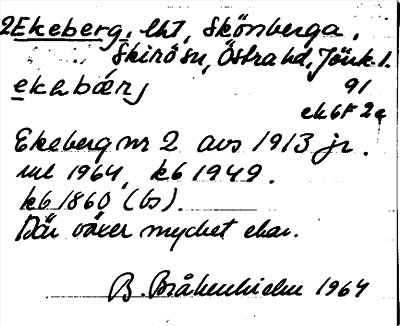 2 Ekeberg, lht, Skönberga,
Skirö sn, Östra hd, Jönk. l.
ekebærj 91
ek 6F 2e
Ekeberg nr 2 avs 1913 jr.
ml 1964, kb 1949.
kb 1860 (bs).
Där växer mycket ekar.
B. Bråkenhielm 1964